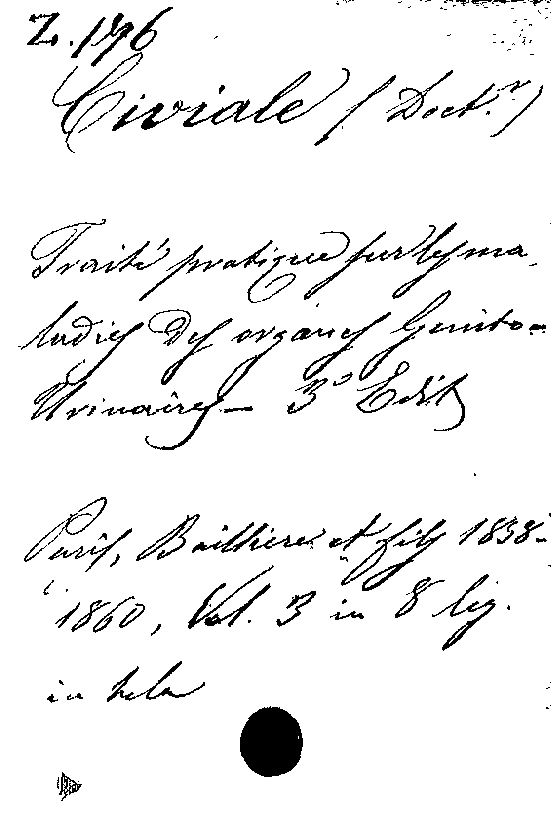 Z. 176
Civiale (Doct.r)
Traité pratique sur les ma,
ladies des organes Genito-
Urinaires— 3º Edit
Paris, Bailliere et fils 1858-
1860, Vol. 3 in 8 leg.
in tela